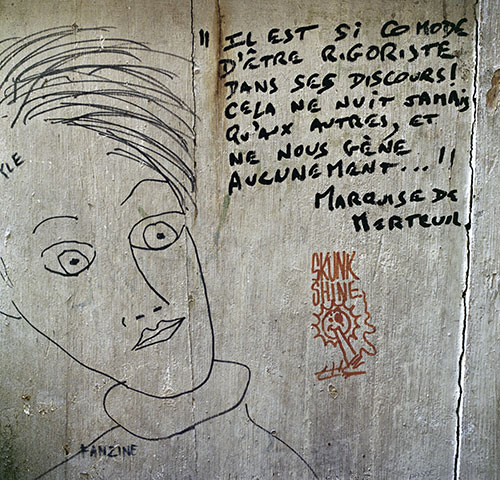 " IL EST SI COMODE
D'ÊTRE RIGORISTE
DANS SES DISCOURS!
CELA NE NUIT JAMAIS
QU'AUX AUTRES, ET
NE NOUS GÈNE
AUCUNEMENT... !!
MARQUISE DE
MERTEUIL.
SKUNK
SHINE
FANZINE